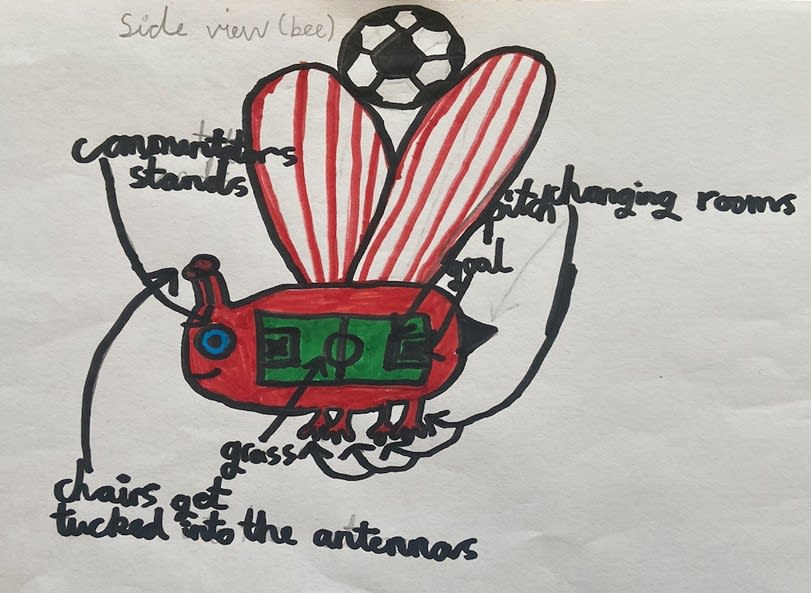 Side view (bee)
commentators
stands
pitch
changing rooms
goal
grass
chairs get
tucked into the antennas